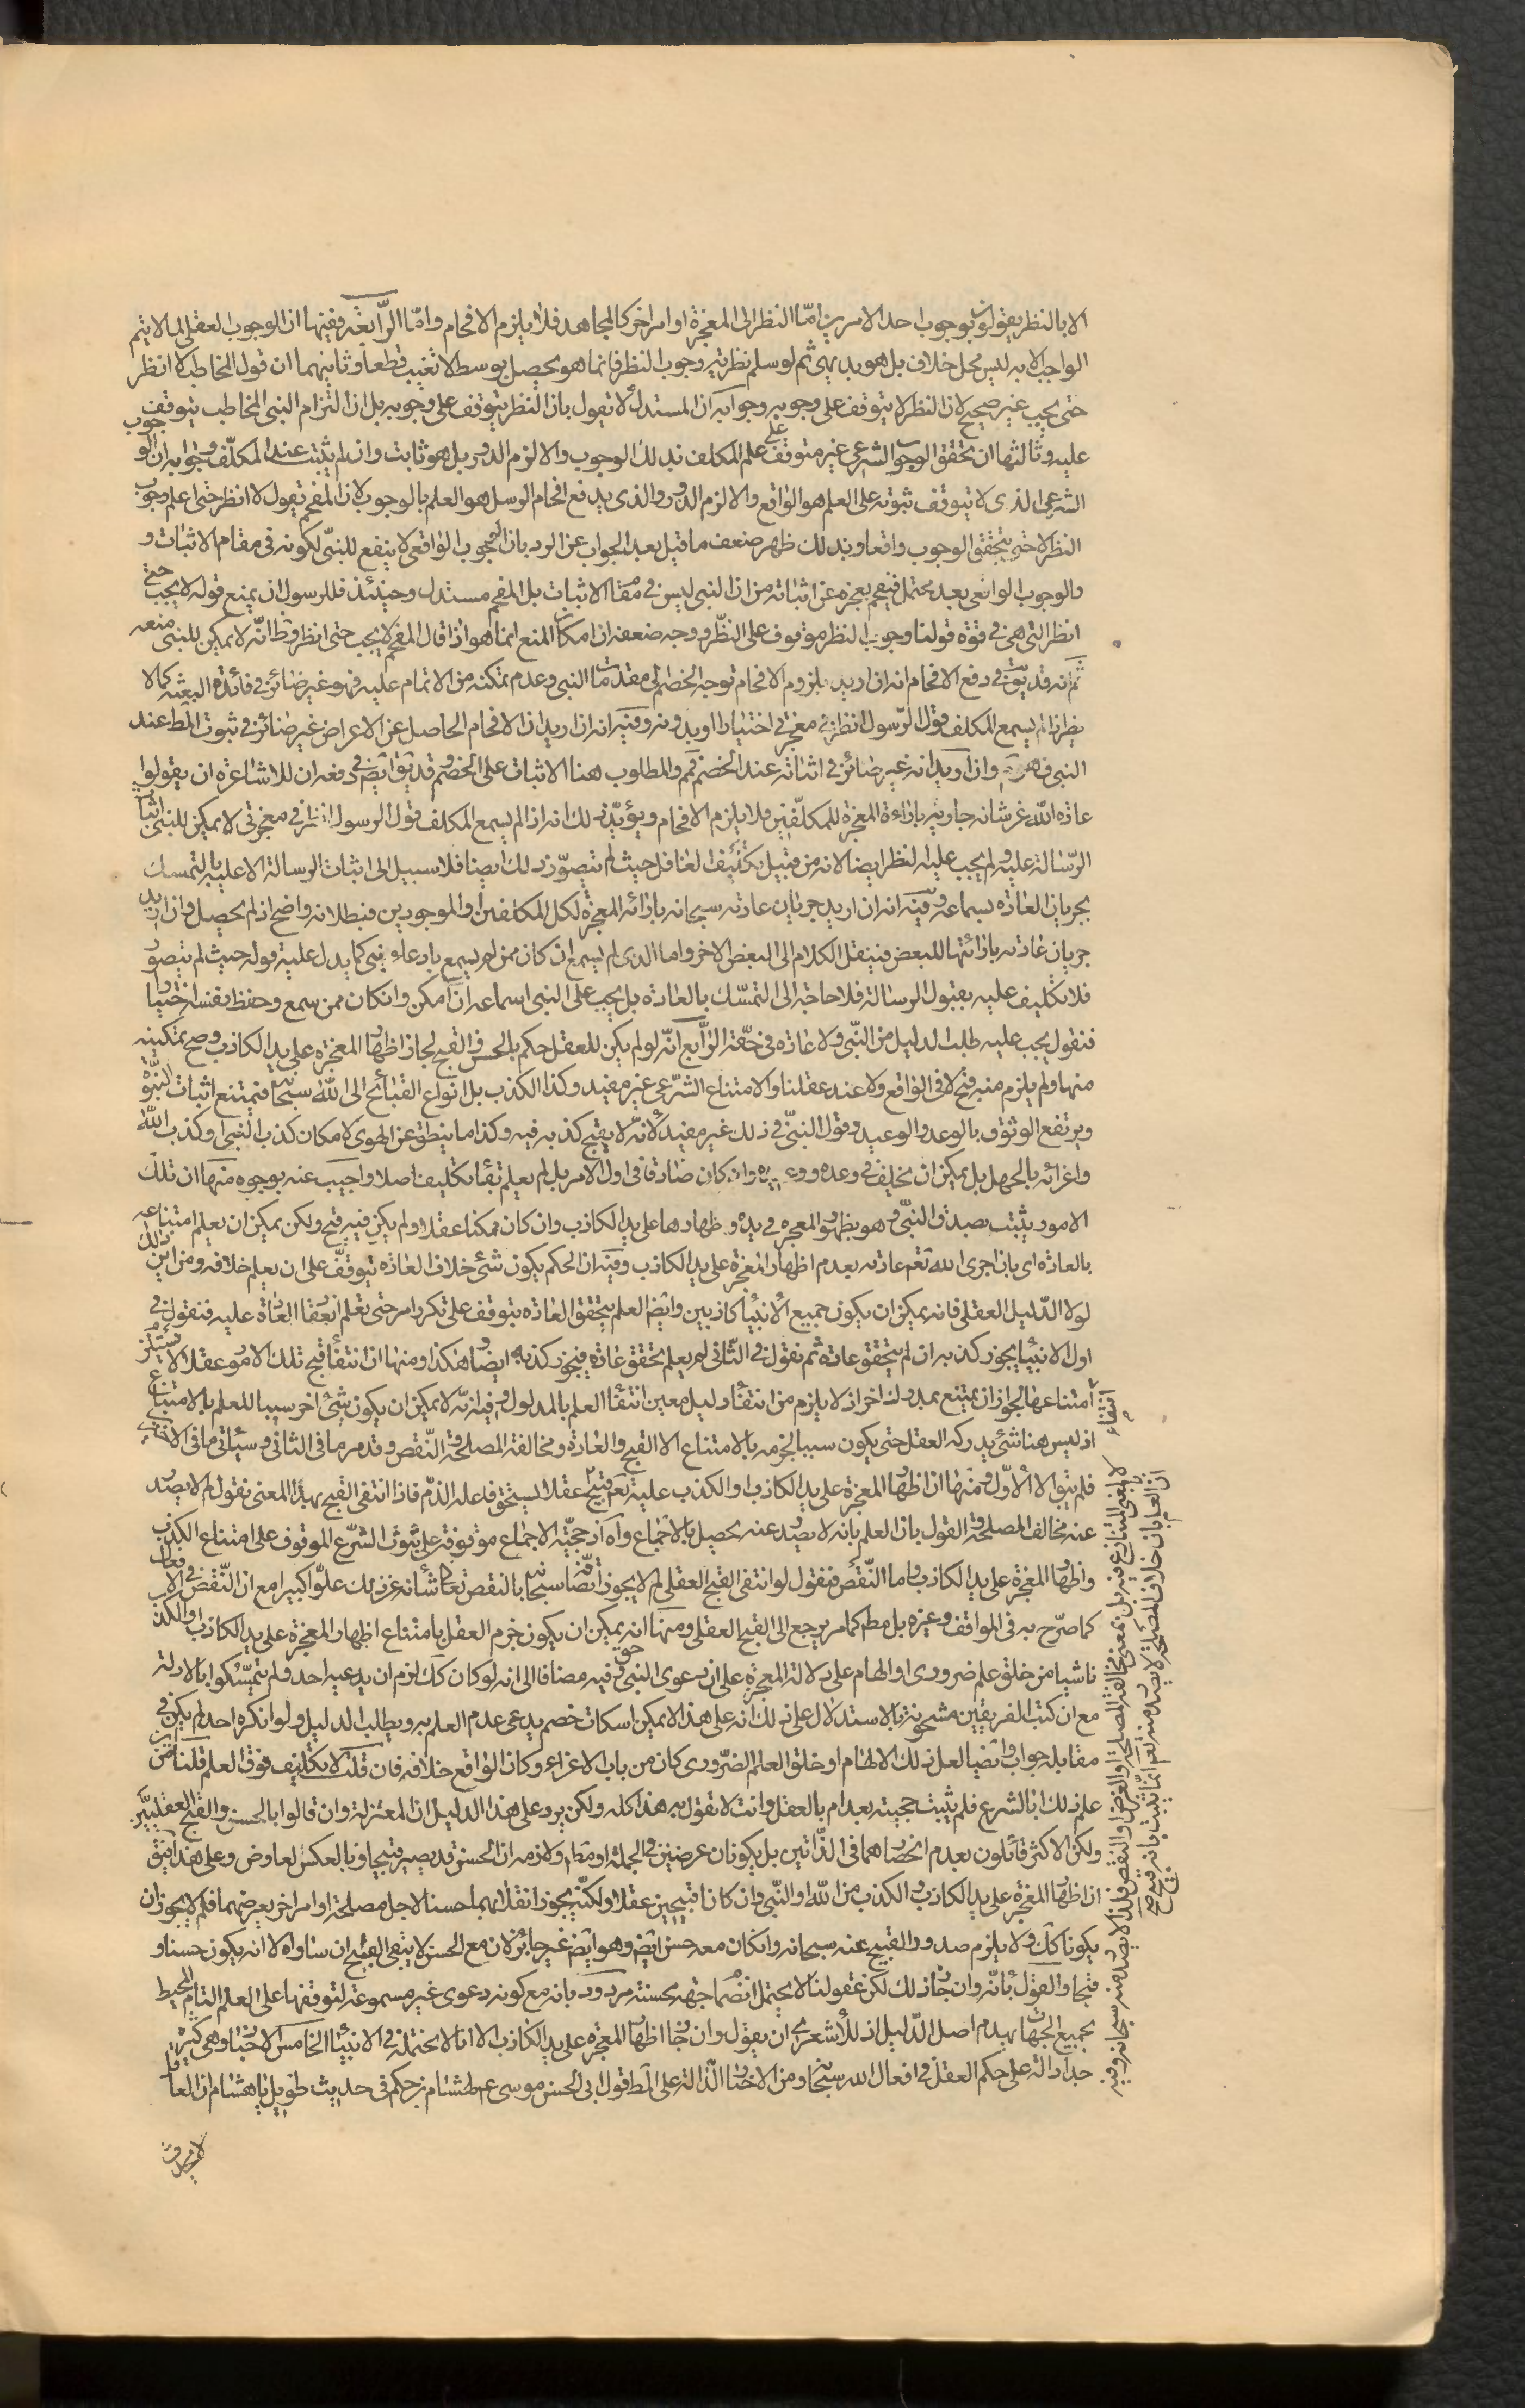 الا بالنظر يقولون بوجوب احد الامرين امّا النظر الى المعجزة او امر اخر كالمجاهد فلا يلزم الافحام وامّا الرّابعة ففيها ان الوجوب العقلى لما لا يتم
الواجب الا به ليس محل خلاف بل هو بديهى ثم لو سلم نظريته وجوب النظر فانما هو يحصل بوسط لا تغيب قطعا وثانيهما ان قول المخاطب لا انظر
حتى يجب غير صحيح لان النظر لا يتوقف على وجوبه وجوابه ان المستدل لا تقول بان النظر يتوقف على وجوبه بل ان التزام النبى المخاطب يتوقف
عليه وثالثها ان تحقق الوجوب الشرعى غير متوقف على علم المكلف بذلك الوجوب والا لزم الدور بل هو ثابت وان لم يثبت عند المكلّف وجوابه ان الوجوب
الشرعى الذى لا يتوقف ثبوته على العلم هو الواقع والا لزم الدور والذى يدفع افحام الرسل هو العلم بالوجوب لان المفحم يقول لا انظر حتى اعلم وجوب
النظر لا حتى يتحقق الوجوب واقعا وبذلك ظهر ضعف ما قيل بعد الجواب عن الرد بان الوجوب الواقعى لا ينفع للنبىّ لكونه فى مقام الاثبات و
والوجوب الواقعى بعد محتمل فيفحم بعجزه عن اثباته من ان النبى ليس فى مقام الاثبات بل المفحم مستدل وحينئذ فللرسول ان يمنع قوله لا يجب حتى
انظر التى هى فى قوة قولنا وجوب النظر موقوف على النظر ووجه ضعفه ان امكان المنع انما هو اذا قال المفحم لا يجب حتى انظر وظ انّه لا يمكن للنبى منعه
ثم انه قد يق فى دفع الافحام انه ان اريد بلزوم الافحام توجه الخصم الى مقدمات النبى وعدم تمكنه من الاتمام عليه فهو غير ضائر فى فائدة البعثه كما لا
يضر اذا لم يسمع المكلف قول الرّسول انظر فى معجزتى اختيارا او بدونه وفيه انه ان اريد ان الافحام الحاصل عن الاعراض غير ضائر فى ثبوت المط عند
النبى فهو وان اريد انه غير ضائر فى اثباته عند الخصم فمم والمطلوب هنا الاثبات على الخصم وقد يق ايض فى دفعه ان للاشاعره ان يقولوا
عادة اللّه عز شانه جاريه باراءة المعجزة للمكلّفين فلا يلزم الافحام ويؤيّد ذلك انه اذا لم يسمع المكلف قول الرسول انظر فى معجزتى لا يمكن للنبى اثبات
الرّسالة عليه ولم يجب عليه النظر ايضا لانه من قبيل تكليف الغافل حيث لم يتصوّر ذلك ايضا فلا سبيل الى اثبات الرسالة الا عليه بالتمسك
بجريان العادة بسماعه وفيه انه ان اريد جريان عادته سبحانه باراءة المعجزة لكل المكلفين او الموجودين فبطلانه واضح اذ لم يحصل وان اريد
جريان عادته باراءتها للبعض فينقل الكلام الى البعض الاخر واما الذى لم يسمع ان كان ممن لم يسمع بادعاء نبى كما يدل عليه قوله حيث لم يتصور
فلا تكليف عليه بقبول الرسالة فلا حاجة الى التمسّك بالعادة بل يجب على النبى اسماعه ان امكن وان كان ممن سمع وحفظ نفسه اختيارا
فنقول يجب عليه طلب الدليل من النّبى ولا عادة فى حقّه الرّابع انّه لو لم يكن للعقل حكم بالحسن والقبح لجاز اظهار المعجزه على يد الكاذب وصح تمكينه
منها ولم يلزم منه قبح لا فى الواقع ولا عند عقلنا والامتناع الشّرعى غير مفيد وكذا الكذب بل انواع القبائح الى اللّه سبحانه فيمتنع اثبات النبوّة
ويرتفع الوثوق بالوعد والوعيد وقول النبىّ فى ذلك غير مفيد لانّه لا يقبح كذبه فيه وكذا ما ينطق عن الهوى لامكان كذب النبى وكذب اللّه
واغرائه بالجهل بل يمكن ان يخلف فى وعده ووعيده وان كان صادقا فى اول الامر بل لم يعلم تكليف اصلا واجيب عنه بوجوه منها ان تلك
الامور يثبت بصدق النبىّ وهو بظهور المعجزه فى يده واظهارها على يد الكاذب وان كان ممكنا عقلا ولم يكن فيه قبح ولكن يمكن ان يعلم امتناعه
بالعاده اى بان اجرى اللّه تعم عادته بعدم اظهار المعجزة على يد الكاذب وفيه ان الحكم بكون شئ خلاف العادة يتوقّف على ان يعلم خلافه ومن اين ذلك
لولا الدّليل العقلى فانه يمكن ان يكون جميع الانبياء كاذبين وايض العلم بتحقق العاده يتوقف على تكرر امر حتى تعلم انعقاد العادة عليه فنقول فى
اول الانبياء يجوز كذبه ان لم يتحقق عادة ثم نقول فى الثّانى لم يعلم تحقق عادة فيجوز كذبه ايضا وهكذا ومنها ان انتفاء قبح تلك الامور عقلا لا يستلزم
امتناعها لجواز ان يمتنع بمدرك اخر اذ لا يلزم من انتفاء دليل معين انتفاء العلم بالمدلول وفيه انّه لا يمكن ان يكون شئ اخر سببا للعلم بالامتناع
اذ ليس هنا شئ يدركه العقل حتى يكون سببا لجزمه بالامتناع الا القبح والعادة ومخالفة المصلحة والنّقص وقد مر ما فى الثانى وسيأتى ما فى الاخيرين
فلم يبق الا الاوّل ومنها ان اظهار المعجزة على يد الكاذب او الكذب عليه تعم قبيح عقلا يستحق فاعله الذمّ فاذا انتفى القبح بهذا المعنى نقول لم لا يصدر
عنه مخالف المصلحة والقول بان العلم بانه لا يصدر عنه يحصل بالاجماع واه اذ حجيّة الاجماع موقوفة على ثبوت الشّرع الموقوف على امتناع الكذب
واظهار المعجزة على يد الكاذب واما النّقص فنقول لو انتفى القبح العقلى لم لا يجوز اتّصافه سبحانه بالنقص تعالى شأنه عن ذلك علوّا كبيرا مع ان النّقص فى الافعال
كما صرّح به فى المواقف وغيره بل مطم كما مر يرجع الى القبح العقلى ومنها انه يمكن ان يكون جزم العقل بامتناع اظهار المعجزة على يد الكاذب او الكذب
ناشيا من خلق علم ضرورى او الهام على دلالة المعجزة على ان دعوى النبى حق وفيه مضافا الى انه لو كان كك لزم ان يدعيه احد ولم يتمسّكوا بالادلة
مع ان كتب الفريقين مشحونة بالاستدلال على ذلك انه على هذا لا يمكن اسكات خصم يدعى عدم العلم به ويطلب الدليل ولو انكره احد لم يكن فى
مقابله جواب وايضا لعل ذلك الالهام او خلق العلم الضّرورى كان من باب الاغراء وكان الواقع خلافه فان قلت لا تكليف فوق العلم قلنا من
علم ذلك ان بالشرع فلم يثبت حجيته بعد ام بالعقل وانت لا تقول به هذا كله ولكن يرد على هذا الدليل ان المعتزلة وان قالوا بالحسن والقبح العقليين
ولكن الاكثر قائلون بعدم انحصارهما فى الذّاتيين بل يكونان عرضيين فى الجملة او مط ولازمه ان الحسن قد يصير قبيحا وبالعكس لعارض وعلى هذا فيق
ان اظهار المعجزة على يد الكاذب والكذب من اللّه او النّبى وان كانا قبيحين عقلا ولكنّه يجوز انقلابهما حسنا لاجل مصلحة او امر اخر يعرضهما فلم لا يجوز ان
يكونا كك ولا يلزم صدور القبيح عنه سبحانه وان كان معه حسن ايض وهو ايض غير جائز لان مع الحسن لا يبقى القبيح ان ساواه الا انه يكون حسنا و
قبحا والقول بانّه وان جاز ذلك لكن عقولنا لا يحتمل انضمام جهه محسنته مردود بانه مع كونه دعوى غير مسموعة لتوقفها على العلم التام المحيط
بجميع الجهات يهدم اصل الدّليل اذ للاشعرى ان يقول وان جاز اظهار المعجزه على يد الكاذب الا انا لا نحتمله فى الانبياء الخامس الاخبار وهى كثيرة
جدا دالة على حكم العقل فى افعال اللّه سبحانه ومن الاخبار الدّالة على المط قول ابى الحسن موسى ع لهشام بن حكم فى حديث طويل يا هشام ان العاقل
لا يحدث
انتفاء
لا بمعنى المتنازع فيه بل بمعنى مخالفة المصلحة والغرض او النقص فلذا لا يصدر منه سبحانه وفيه
ان العلم بان خلاف المصلحة لا يصدر منه تعم انما يثبت بانه قبيح